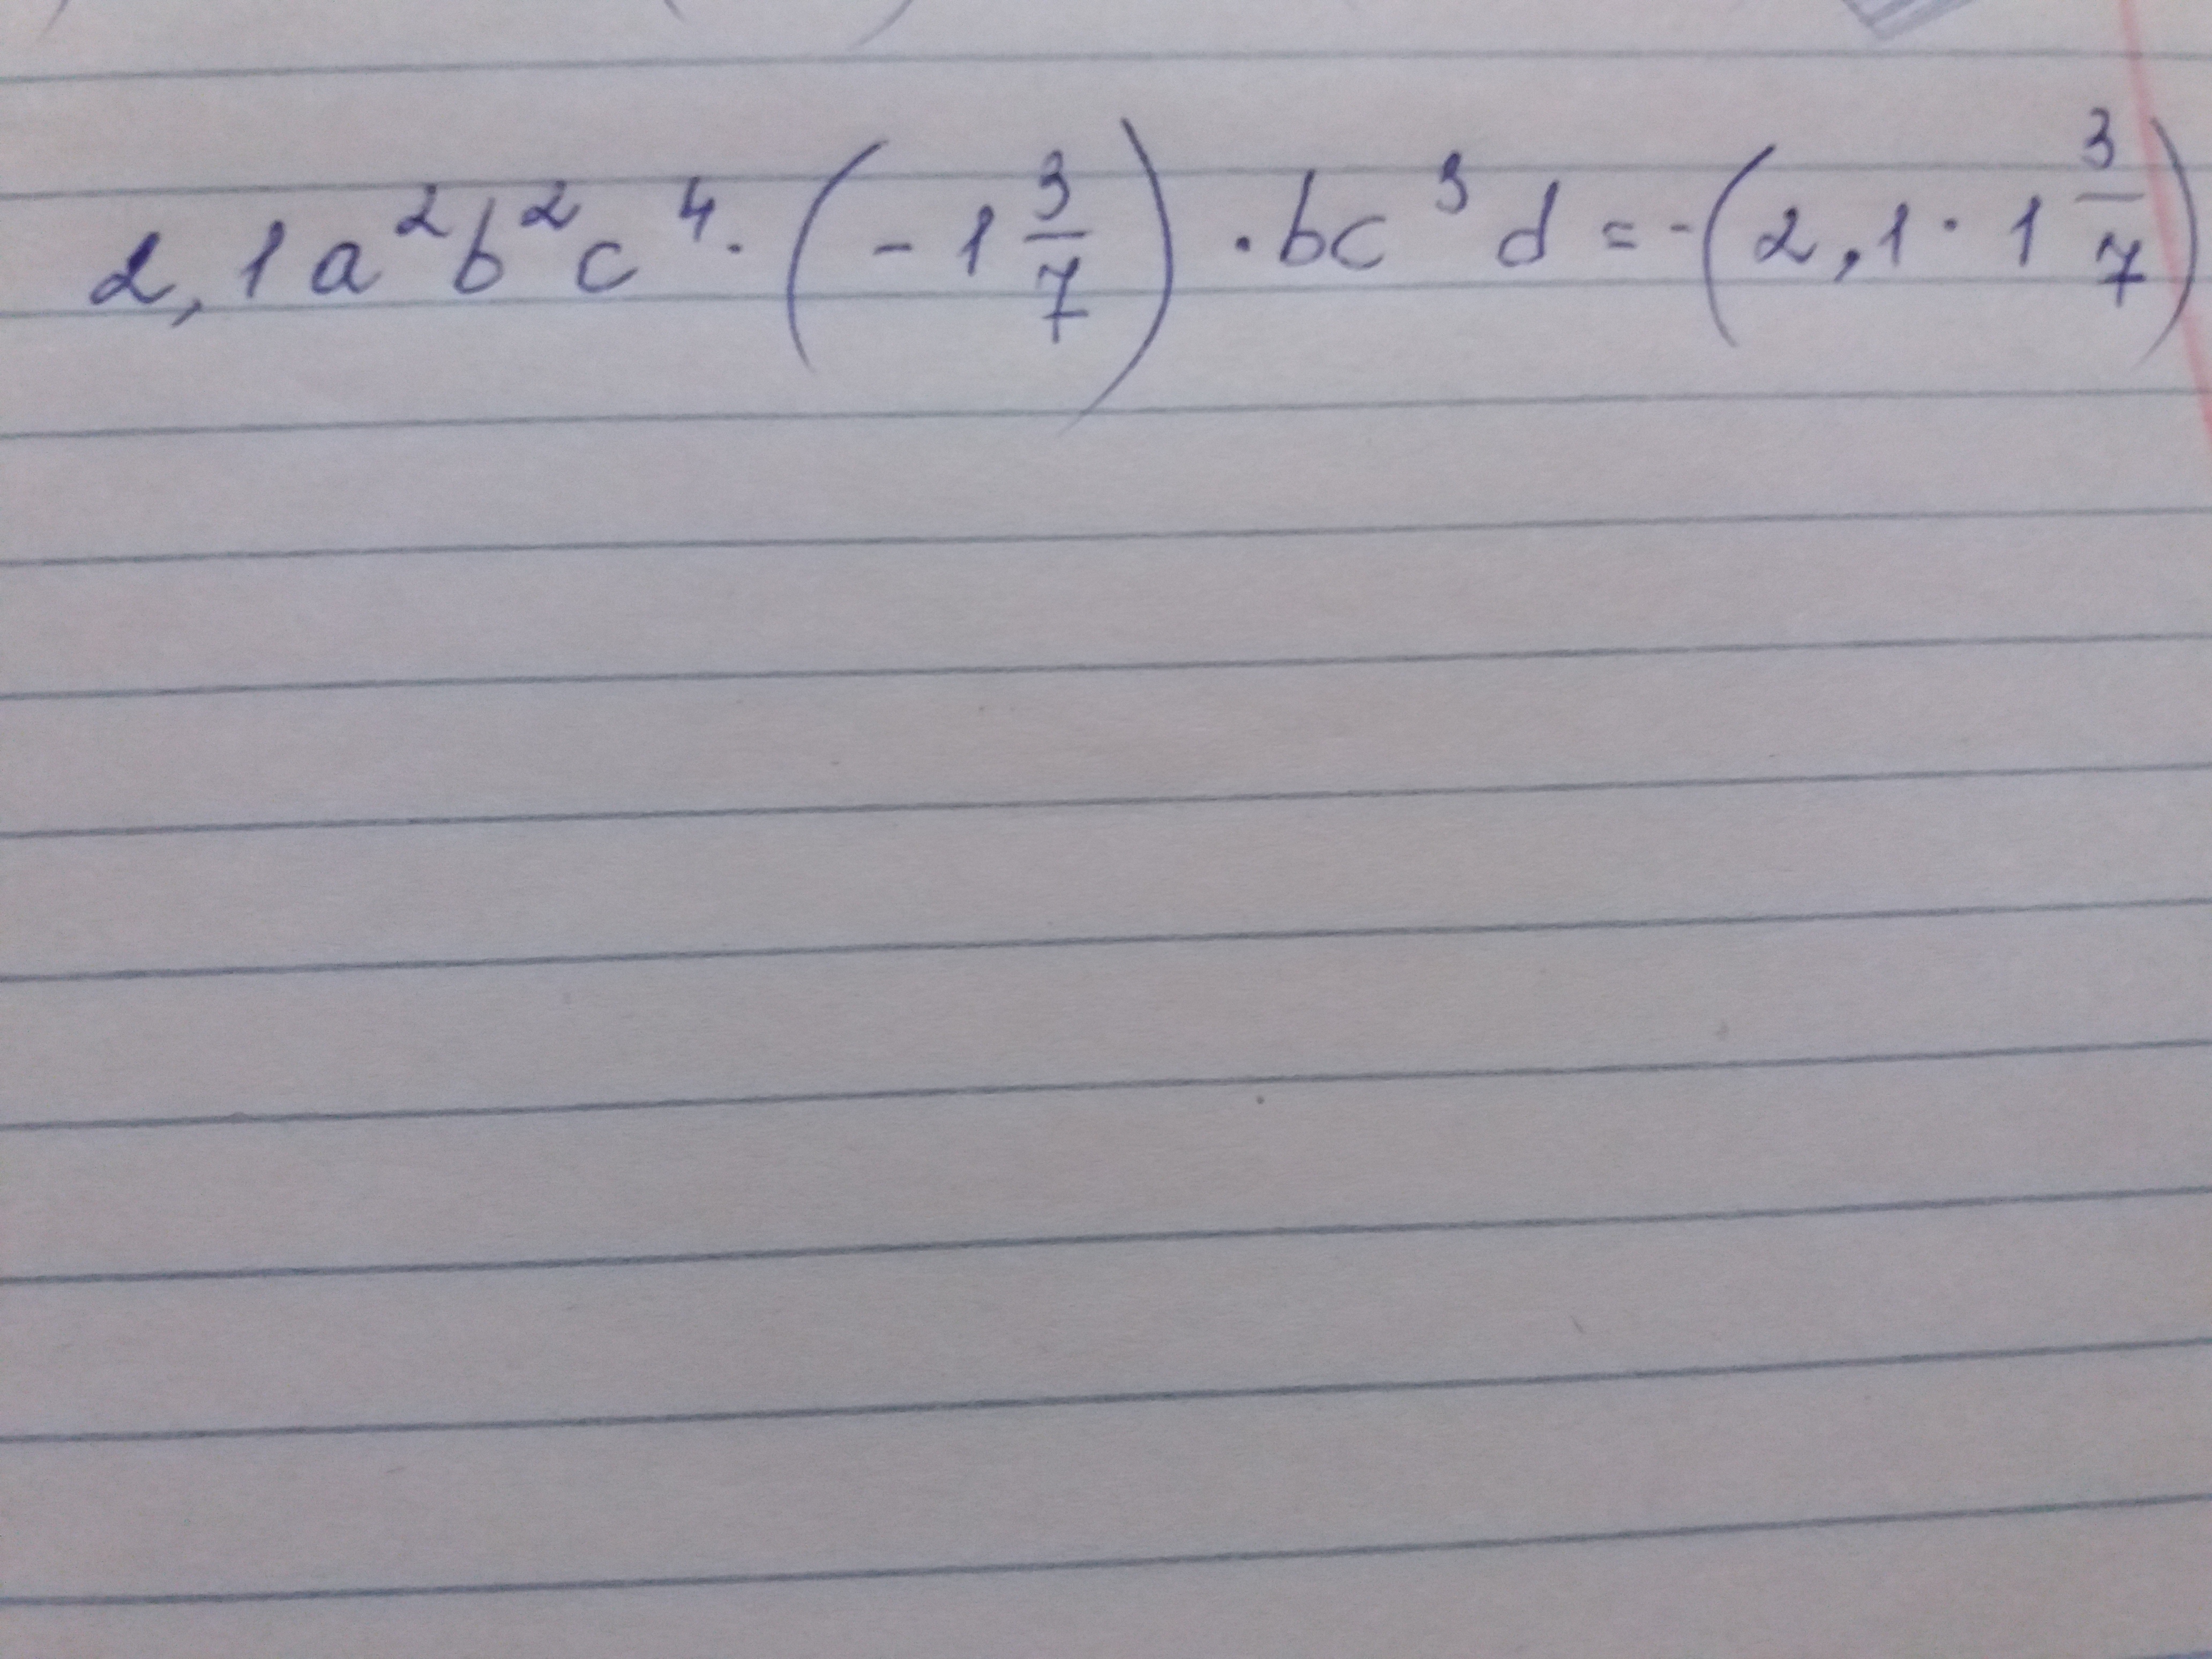 2,1a²b²c⁴·(-1 3/7)·bc³d=-(2,1·1 3/7)